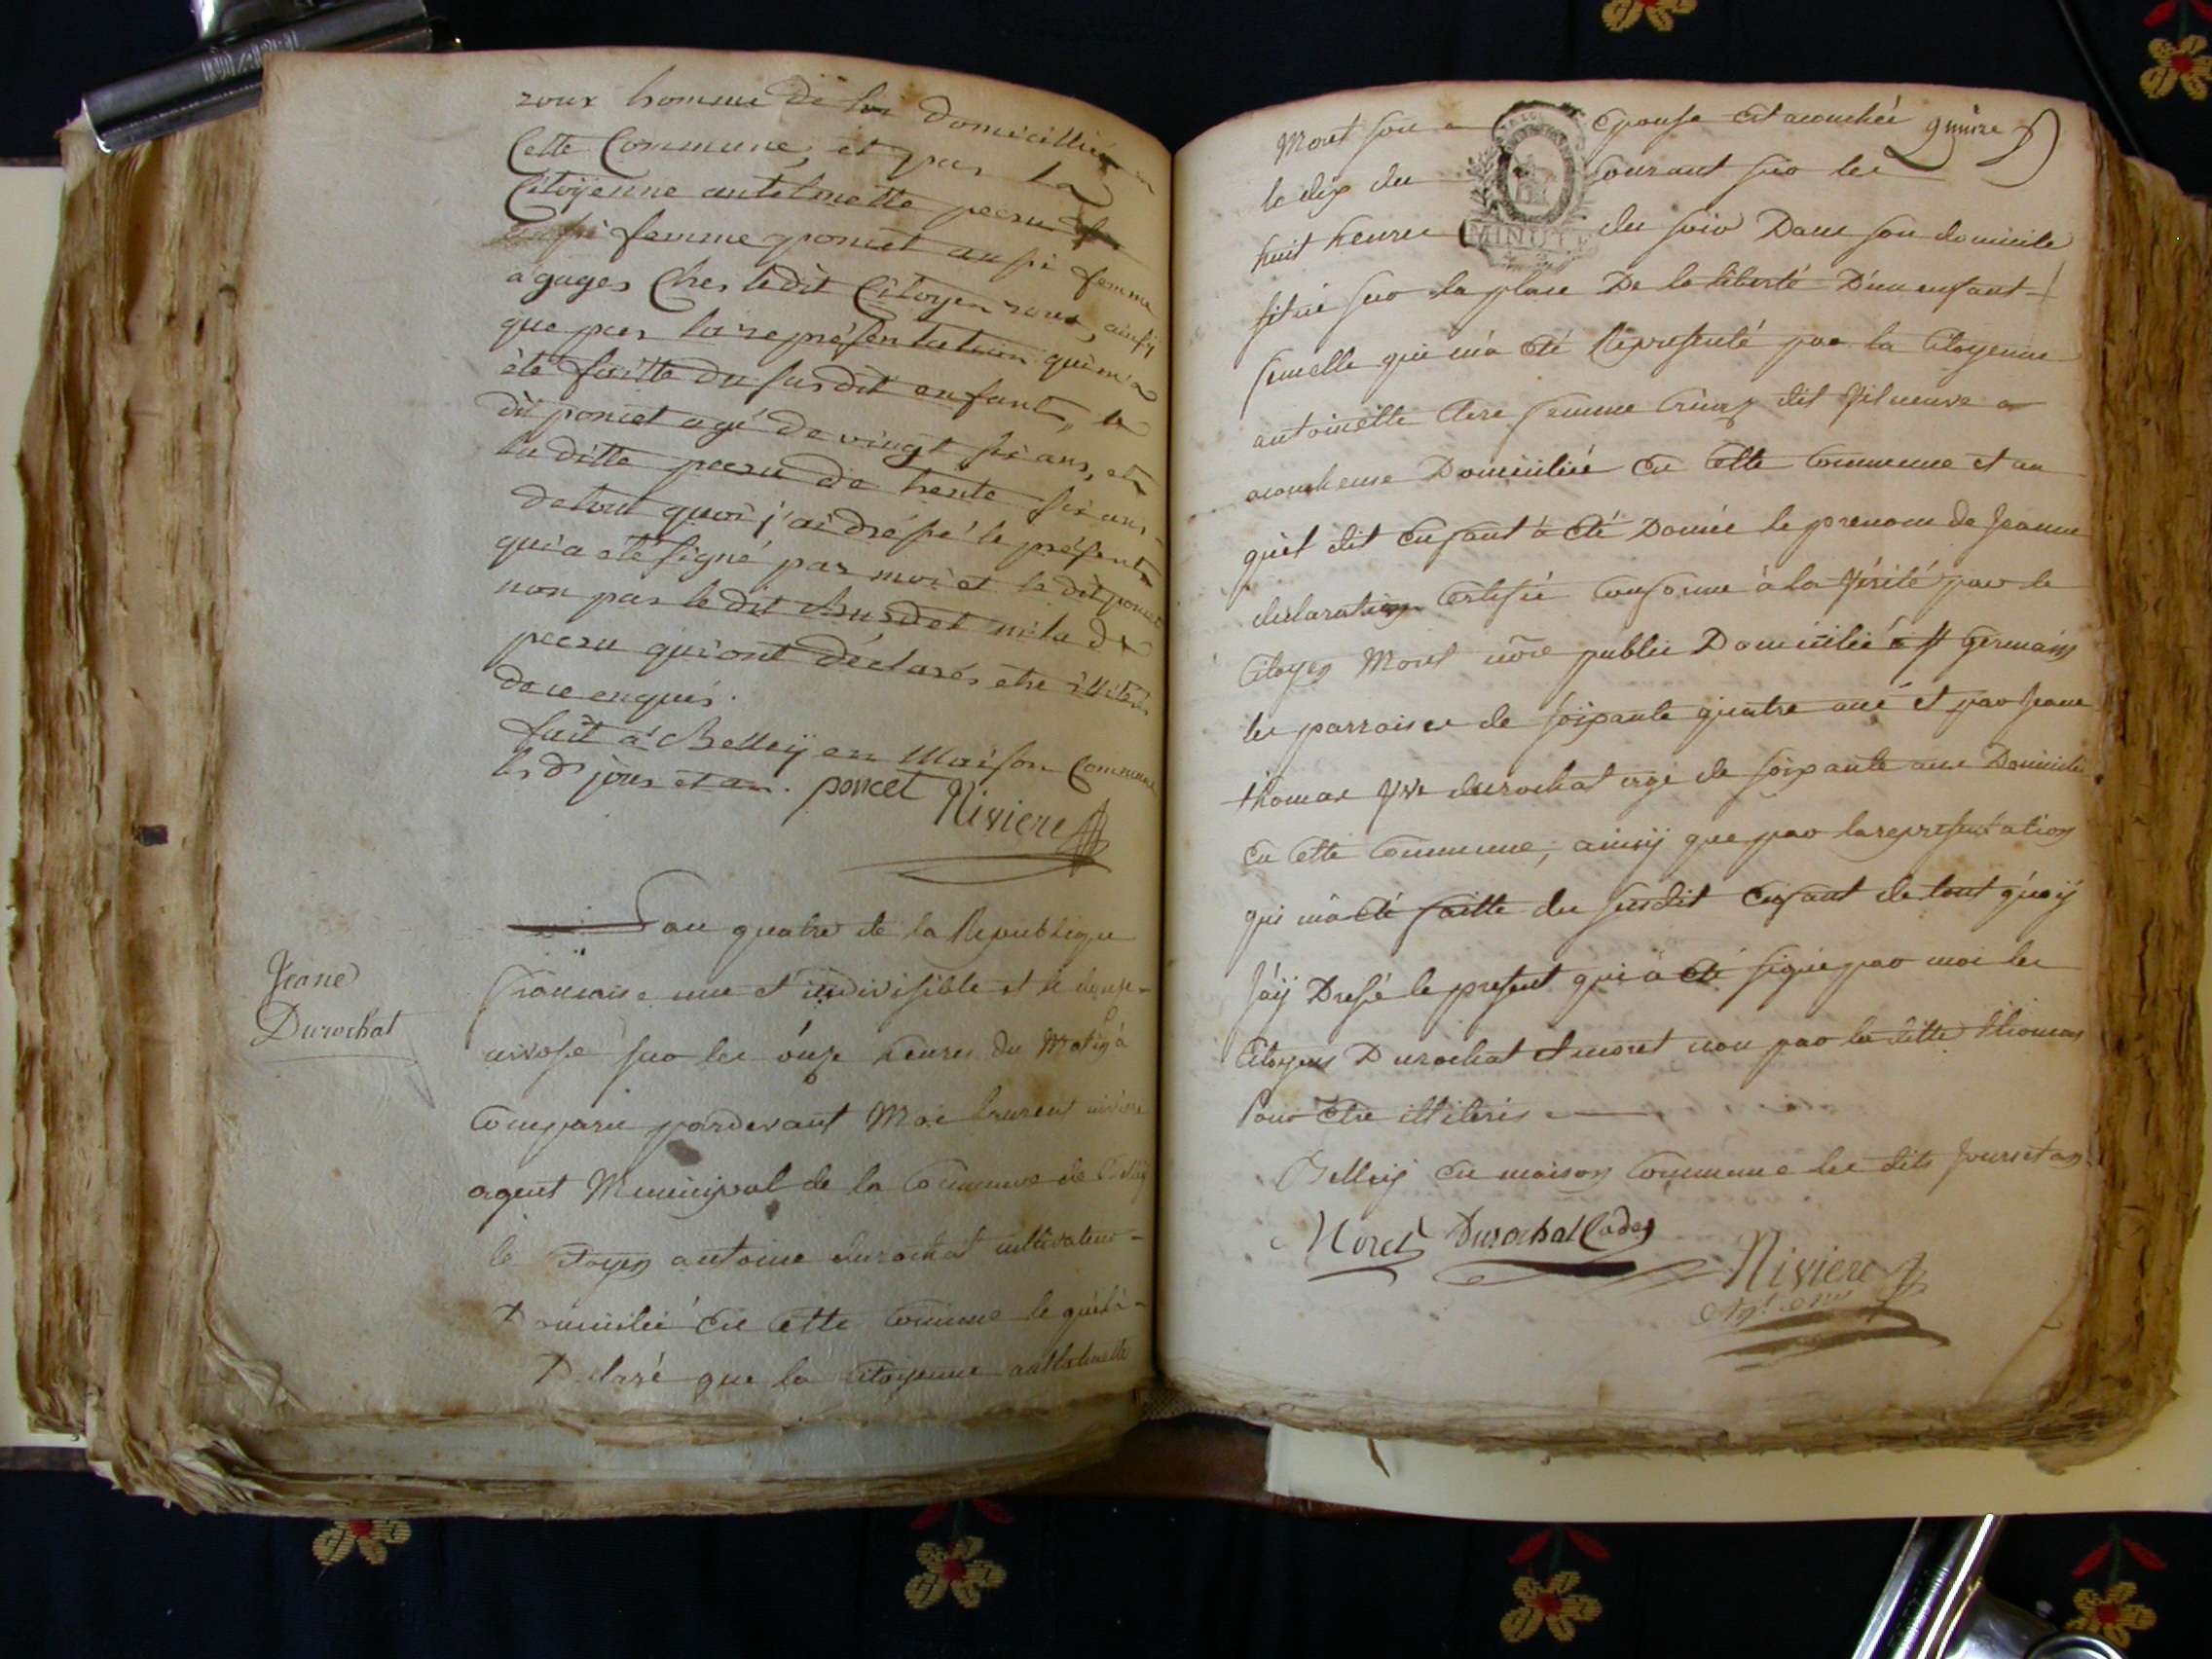 roux homme de loi domicillié en
Cette Commune, et par la
Citoÿenne antelmette pecru
femme poncet aussi femme
a gages Ches ledit Citoyen roux, ainsÿ
que par la représentation qui m'a
èté faitte du susdit enfant, le
dit poncet agé de vingt six ans, et
la ditte pecru de trente six ans,
de tout quoi j'ai dréssé le présent
qui a èté signé par moi et le dit poncet
non pas le dit ni la dte
pecru qui ont déclarés etre illiterés
de ce enquis.
fait a Belleÿ en Maison Commune
les ds jour et an. poncet Riviere
Jeane
Durochat
L'an quatre de la Republique
francaise une et indivisible et le douze
nivose sur les onze heures du Matin a
Comparu pardevant Moi Laurent riviere
agent Municipal de la Commune de Belleÿ
le Citoyen antoine durochat cultivateur
Domicilié en cette Commune le quel a
Déclaré que la Citoyenne anthelmette
Moret son epouse est acouchée
le dix du Courant sur les
huit heures du soir Dans son domicile
situé sur la place De la liberté D'un enfant
femelle qui m'a été Représenté par la Citoyenne
antoinette Clere femme dit
acoucheuse Domiciliée en Cette Commune et au
quel dit enfant a été Donné le prenom de Jeanne
declaration Certifié Conforme à la Vérité par le
Citoyen Moret nore public Domicilié a st germain
les parroisse de soixante quatre ans et par Jeane
thomas vve durochat agé de soixante ans Domicilié
en Cette Commune, ainsÿ que par la representation
qui m'a été faitte du susdit Enfant de tout quoÿ
J'aÿ Dressé le present qui a été signé par moi les
Citoyens Durochat et moret non par la ditte thomas
Pour être illiterés
Belleÿ en maison Commune les dits Jours et an
Moret Durochat Cadet
Riviere
MINUTE